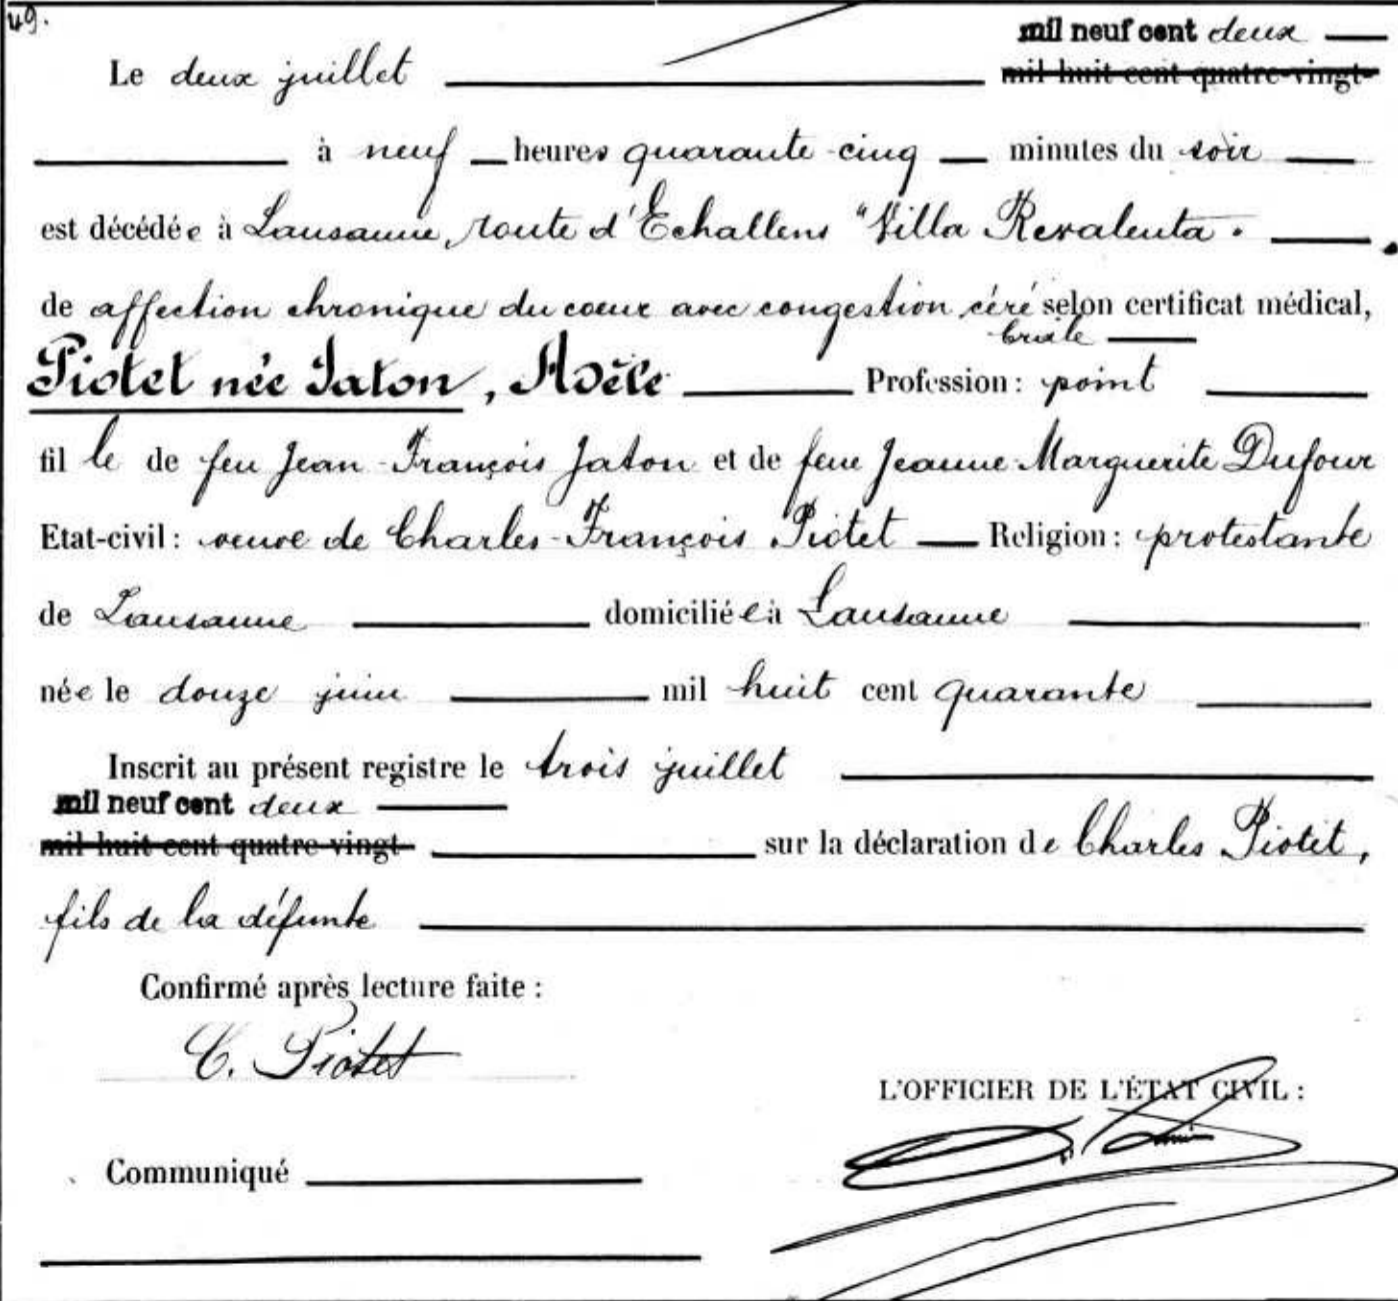 49.
mil neuf cent deux
Le deux juillet mil huit cent quatre-vingt-
à neuf heures quarante-cinq minutes du soir
est décédée à Lausanne, route d'Echallens "Villa Revalenta".
de affection chronique du coeur avec congestion céré selon certificat médical,
brale
Piotet née Jaton, Adèle Profession: point
fille de feu Jean-François Jaton et de feue Jeanne-Marguerite Dufour
Etat-civil: veuve de Charles-François Piotet Religion: protestante
de Lausanne domiciliée à Lausanne
née le douze juin mil huit cent quarante
Inscrit au présent registre le trois juillet
mil neuf cent deux
mil huit cent quatre-vingt- sur la déclaration de Charles Piotet,
fils de la défunte
Confirmé après lecture faite :
C. Piotet
L'OFFICIER DE L'ÉTAT CIVIL :
Communiqué